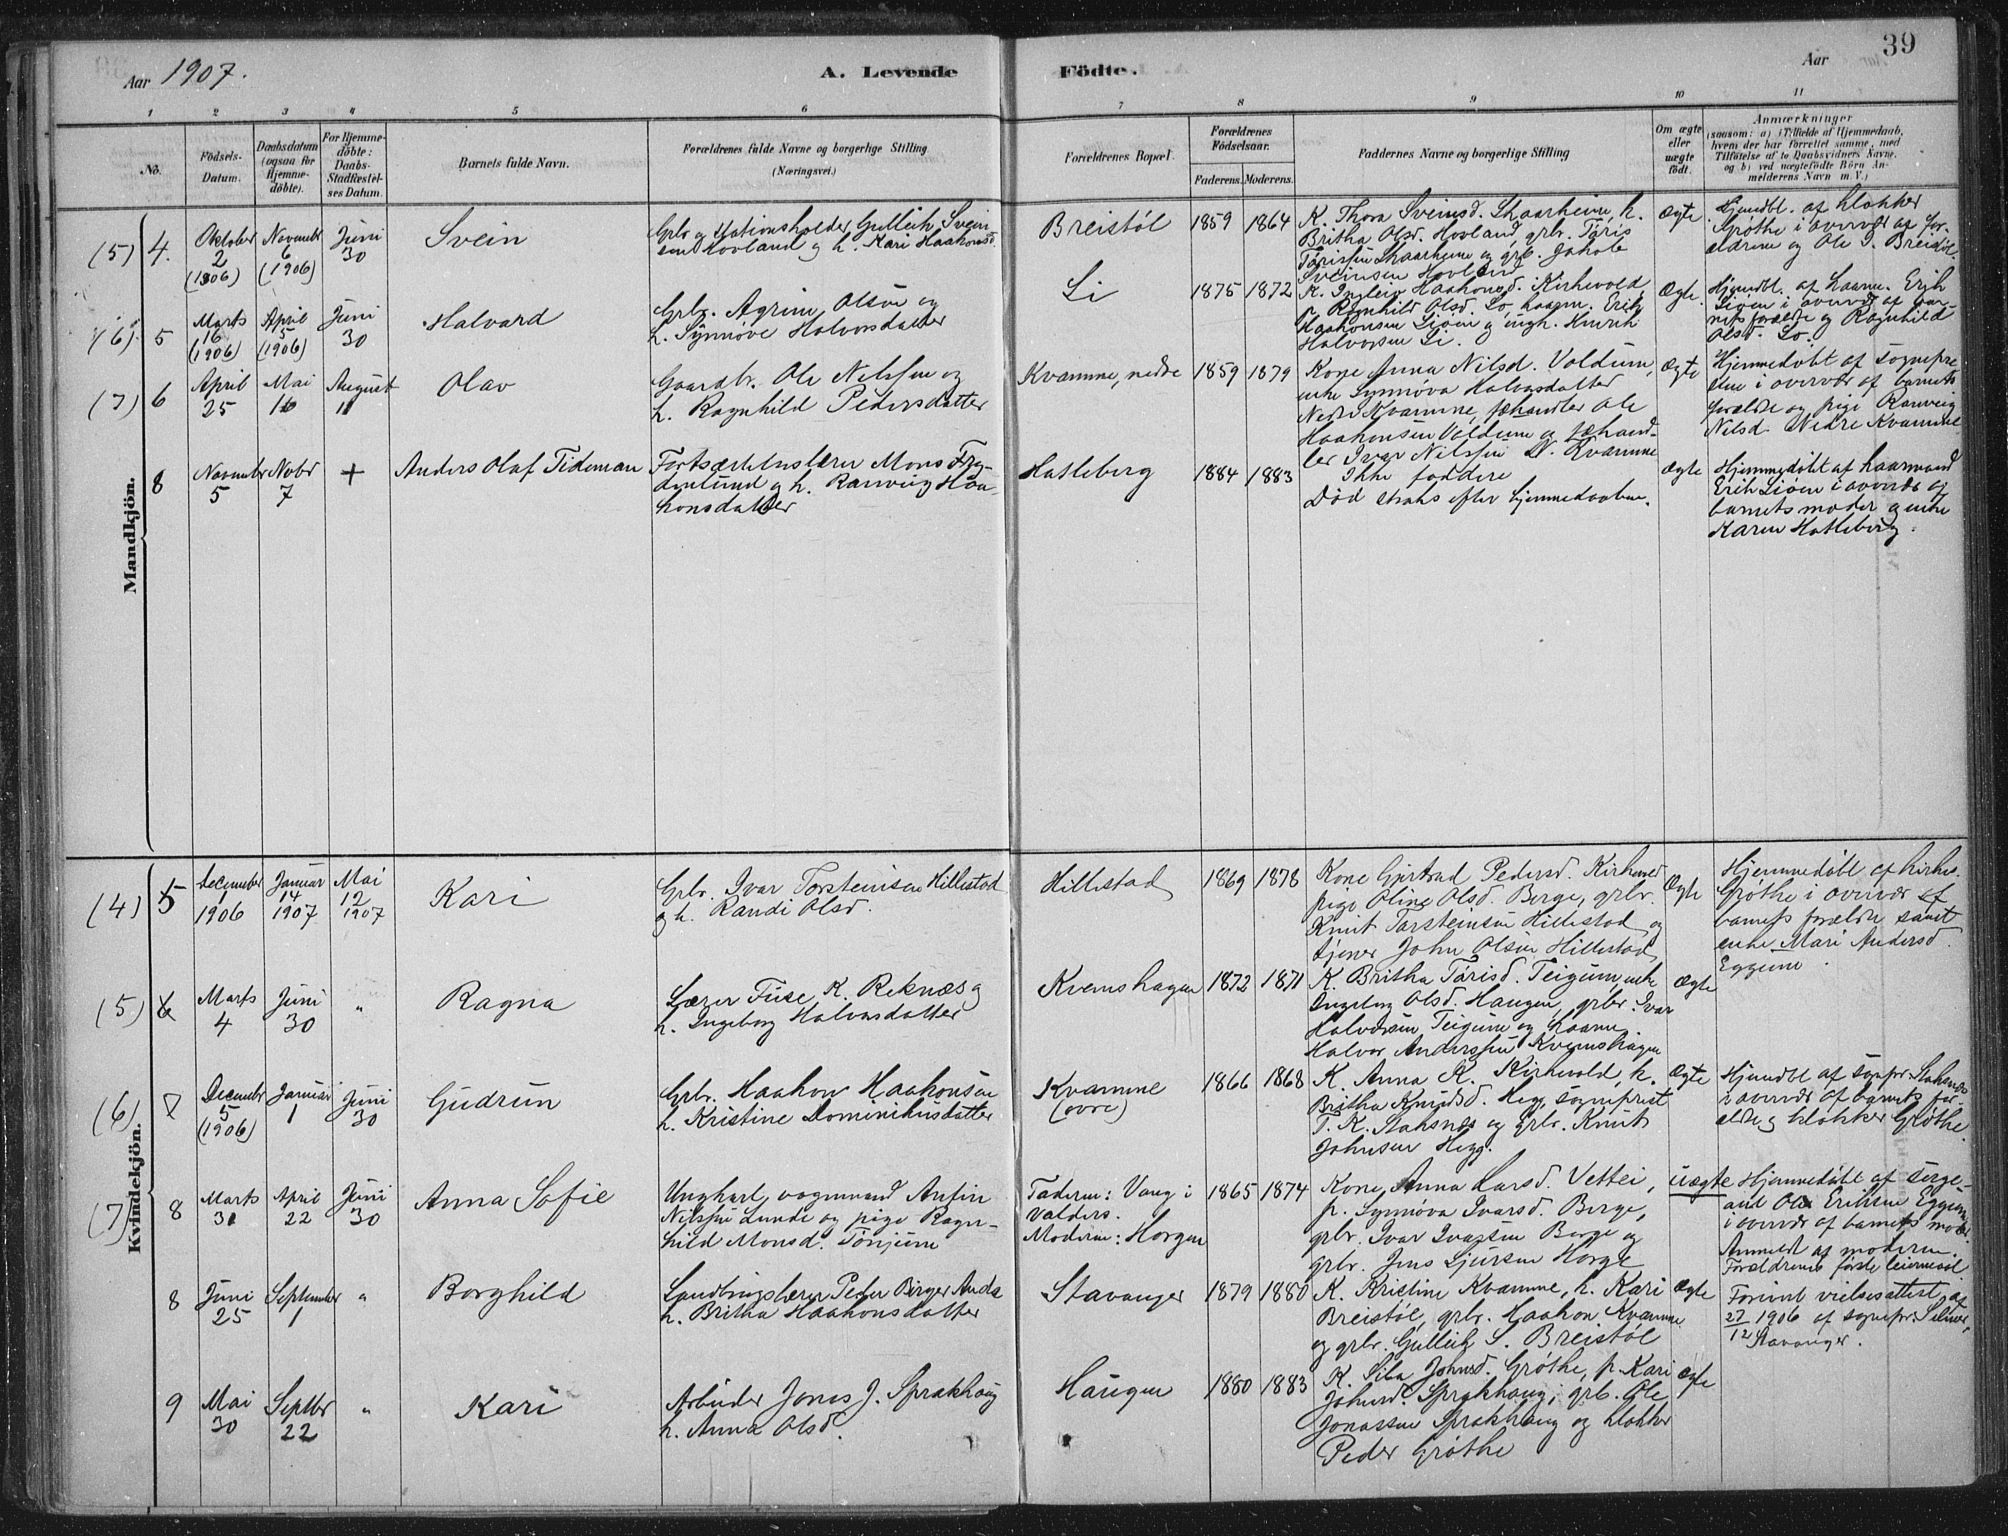 Aar 1907.
A. Levende Födte.
Aar
39
1 2 3 4 5 6 7 8 9 10 11
No.
Födsels-
Datum.
Daabsdatum
(ogsaa for
Hjemme-
döbte).
For Hjemme-
döbte:
Daabs-
Stadfæstel-
ses Datum.
Barnets fulde Navn.
Forældrenes fulde Navne og borgerlige Stilling
(Næringsvei.)
Forældrenes Bopæl.
Forældrenes
Födselsaar.
Faderens. Moderens.
Faddernes Navne og borgerlige Stilling
Om ægte
eller
uægte
födt.
Anmærkninger
(saasom: a) i Tilfælde af Hjemmedaab,
hvem der har forrettet samme, med
Tilföielse af to Daabsvidners Navne.
og b) ved uægtefödte Börn An-
melderens Navn m. V.)
Mandkjön.
(5) 4.
Oktober
2
(1906)
Novembr
6
(1906)
Juni
30
Svein
Grbr og Stationsholder Gulleik Svein
sen Hovland og h. Kari Haakonsd.
Breistöl
1859 1864
K. Thora Sveinsd. Skaarheim, k.
Britha Olsd. Hovland, grbr. Töris
Törissen Skaarheim og grb. Jakob
Sveinsen Hovland
Ægte
Hjemdbt. af klokker
Gröthe i overvær af for-
ældrene og Ole G. Breistöl.
(6) 5
Marts
16
(1906)
April
5
(1906)
Juni
30
Halvard
Grbr. Agrim Olsön og
h. Synnöve Halvorsdatter
Li
1875 1872
K. Ingleiv Haakonsd. Kirkevold,
p. Ragnhild Olsd. Lo, haarm. Erik
Haakonsen Ljöen og ungk. Henrik
Halvorsen Li.
Ægte.
Hjemdbt. af Haarm. Erik
Ljöen i overvær af bar-
nets forældre og Ragnhild
Olsd. Lo.
(7) 6
April
25
Mai
16
August
11
Olav
Gaardbr. Ole Nilssen og
h. Ragnhild Pedersdatter
Kvamme, nedre
1859 1879
Kone Anna Nilsd. Voldum,
enke Synnöva Halvorsdatter
Nedre Kvamme, fæhandler Ole
Haakonsen Voldum og fæhand-
ler Ivar Nilssen N. Kvamme
Ægte
Hjemmedöbt af sognepre
sten i overvær af barnets
forældre og pige Ranveig
Nilsd. Nedre Kvamme
8
Novembr
5
Novbr
7
+
Anders Olaf Tideman
Hatleberg
1884 1883
Ikke faddere
Död straks efter hjemmedaaben.
ægte
Hjemmedöbt af haarmand
Erik Ljöen i overvær af
barnets moder og enke
Karen Hatleberg.
Kvindekjön.
(4) 5
December
1
1906
Januar
14
1907
Mai
12
1907
Kari
Grbr. Ivar Torsteinsen Hillestad
og h. Randi Olsd.
Hillestad
1869 1878
Kone Gjertrud Pedersd. Kirkevold
pige Oline Olsd. Berge, grbr.
Knut Torsteinsen Hillestad og
tjener John Olsen Hillestad
Ægte
Hjemmedöbt af kirkes.
Gröthe i overvær af
barnets forældre samt
enke Mari Andersd.
Eggum.
(5) 6
Marts
4
Juni
30
"
Ragna
Lærer Fuse K. Reknæs og
h. Ingeborg Halvorsdatter
Kvemshagen
1872 1871
K. Britha Törisd. Teigum, enke
Ingeborg Olsd. Haugen, grbr. Ivar
Halvorsen Teigum og haarm.
Halvor Anderssen Kvemshagen
Ægte
(6) 7
December
5
(1906)
Januar
1
Juni
30
Gudrun
Grbr. Haakon Haakonsen
h. Kristine Dominikusdatter
Kvamme
(övre)
1866 1868
K. Anna K. Kirkevold, k.
Britha Knudsd. Hegg, sogneprest
T. K. Staksnæs og Grbr. Knut
Johnsen Hegg.
Ægte
Hjemdbt af sognepr. Staksnæs
i overvær af barnets for-
ældre og klokker Gröthe.
(7) 8
Marts
31
April
22
Juni
30
Anna Sofie
Ungkarl, vognmand Anfin
Nilssen Lunde og pige Ragn-
hild Monsd. Tönjum
Faderen: Vang i
Valders.
Moderen: Horgen
1865 1874
Kone Anna Larsd. Vetlei,
p. Synnöva Ivarsd. Berge,
grbr. Ivar Ivarsen Berge og
grbr. Jens Sjursen Horge
uægte
Hjemmedöbt af serge-
ant Ole Eriksen Eggum
i overvær af barnets moder.
Anmeldt af moderen.
Forældrenes förste leiermaal.
8
Juni
25
September
1
"
Borghild
Landbrugslærer Peder Birger Anda
h. Britha Haakonsdatter
Stavanger
1879 1880
K. Kristine Kvamme, k. Kari
Breistöl, grbr. Haakon Kvamme
og grbr. Gulleik S. Breistöl
ægte
Forevist vielsesattest af
27/12 1906 af sognepr. Selmer,
Stavanger.
9
Mai
30
Septbr
22
"
Kari
Arbeider Jones J. Sprakhaug
h. Anna Olsd.
Haugen
1880 1883
K. Siba Johnsd. Gröthe, p. Kari
Johnsd. Sprakhaug, grb. Ole
Jonassen Sprakhaug og klokker
Peder Gröthe
Ægte